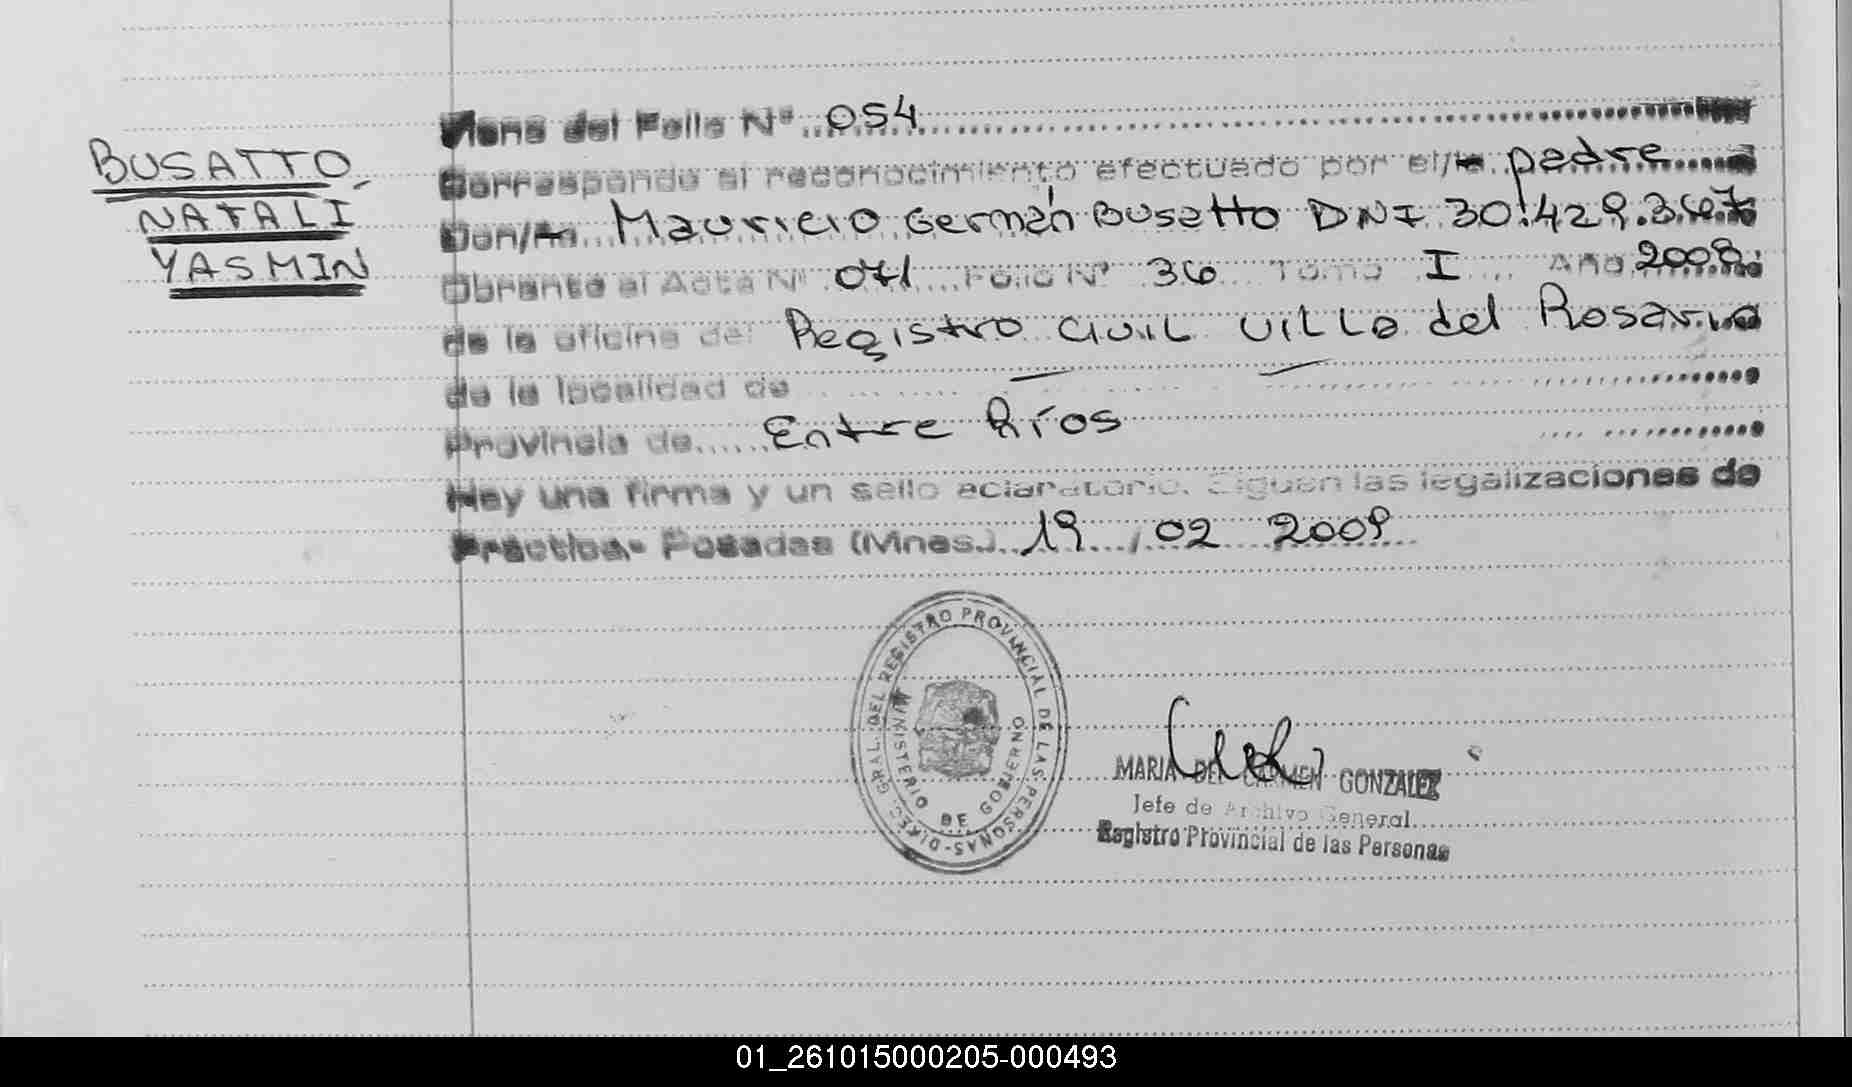 BUSATTO,
NATALI
YASMIN
Viene del Folio Nº 054
Corresponde al reconocimiento efectuado por el/la padre
Don/ña Mauricio Germán Busatto DNI 30.429.367
Obrante al Acta Nº 071 Folio Nº 36 Tomo I Año 2008
de la oficina del Registro Civil Villa del Rosario
de la localidad de
Provincia de Entre Ríos
Hay una firma y un sello aclaratorio. Siguen las legalizaciones de
Práctica- Posadas (Mnes.) 19 / 02 2009
DIREC. GRAL. DEL REGISTRO PROVINCIAL DE LAS PERSONAS
MINISTERIO DE GOBIERNO
MARIA DEL CARMEN GONZALEZ
Jefe de Archivo General
Registro Provincial de las Personas
01_261015000205-000493